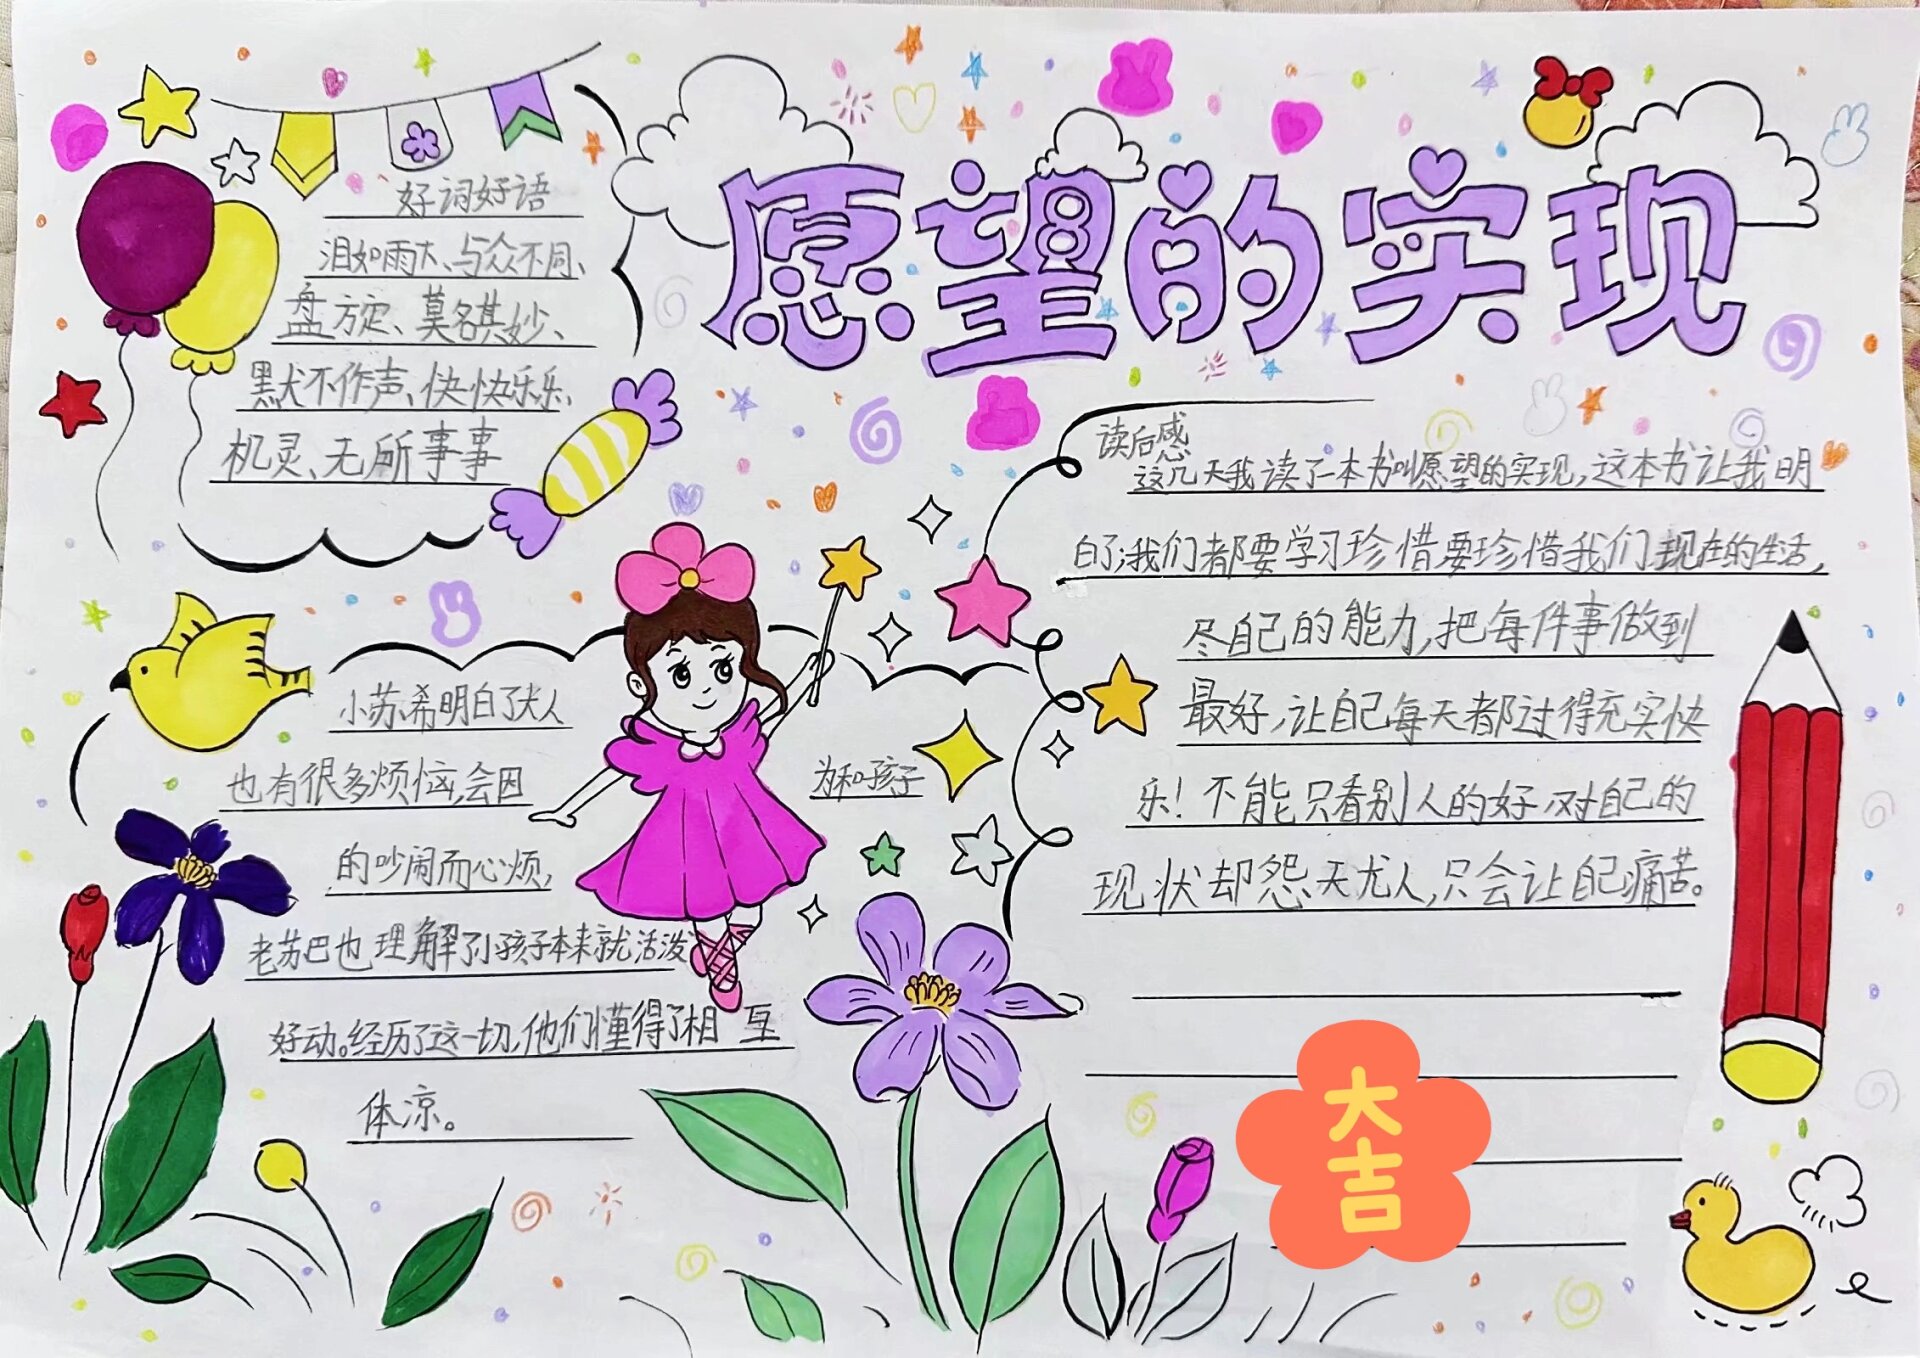 愿望的实现
好词好语
泪如雨下、与众不同、
盘旋、莫名其妙、
默犬不作声、快快乐乐、
机灵、无所事事
读后感
这几天我读了一本书叫愿望的实现,这本书让我明
白了;我们都要学习珍惜要珍惜我们现在的生活,
尽自己的能力,把每件事做到
最好,让自己每天都过得充实快
乐!不能只看别人的好,对自己的
现状却怨天尤人,只会让自己痛苦。
小苏希明白了大人
也有很多烦恼,会因为和孩子
的吵闹而心烦,
老苏巴也理解了小孩子本来就活泼
好动。经历了这一切,他们懂得了相互
体凉。
大吉